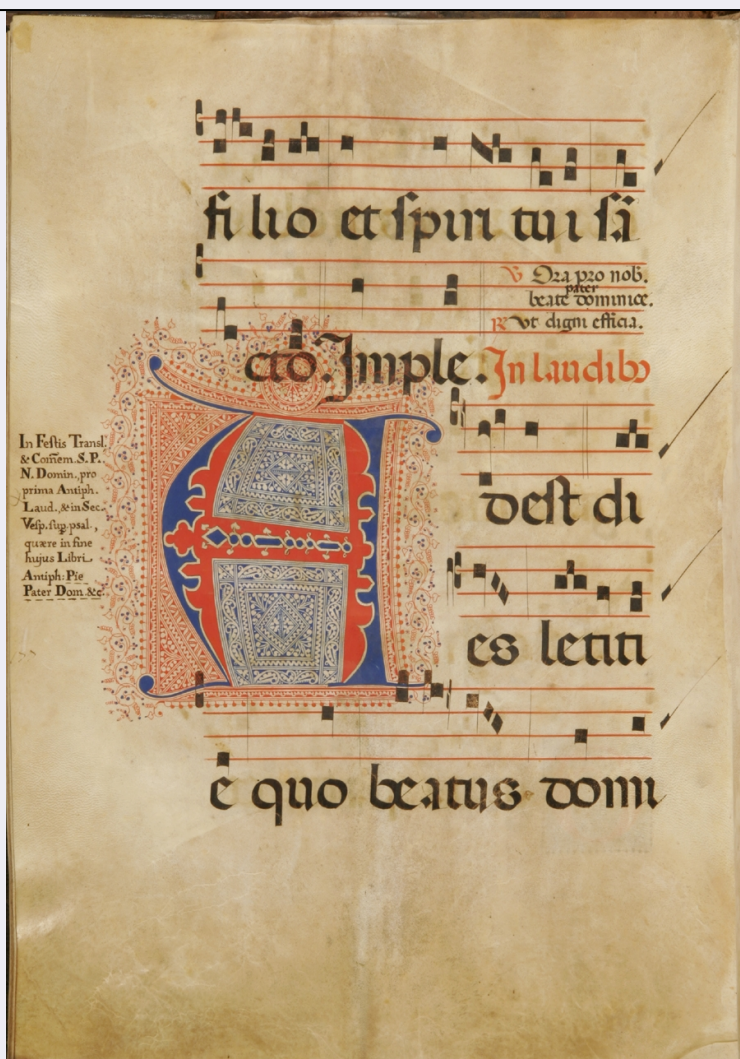 fi lio et spiri tu i sā
℣ Ora pro nob.
pater
beate dominice.
℟ Vt digni efficia.
cto. Imple. In laudibꝰ
In Festis Transl.
& Com̃em. S. P.
N. Domin., pro
prima Antiph.
Laud., & in Sec.
Vesp. sup. psal.,
quære in fine
hujus Libri.
Antiph: Pie
Pater Dom. &c.
A
dest di
es letiti
e quo beatus domi